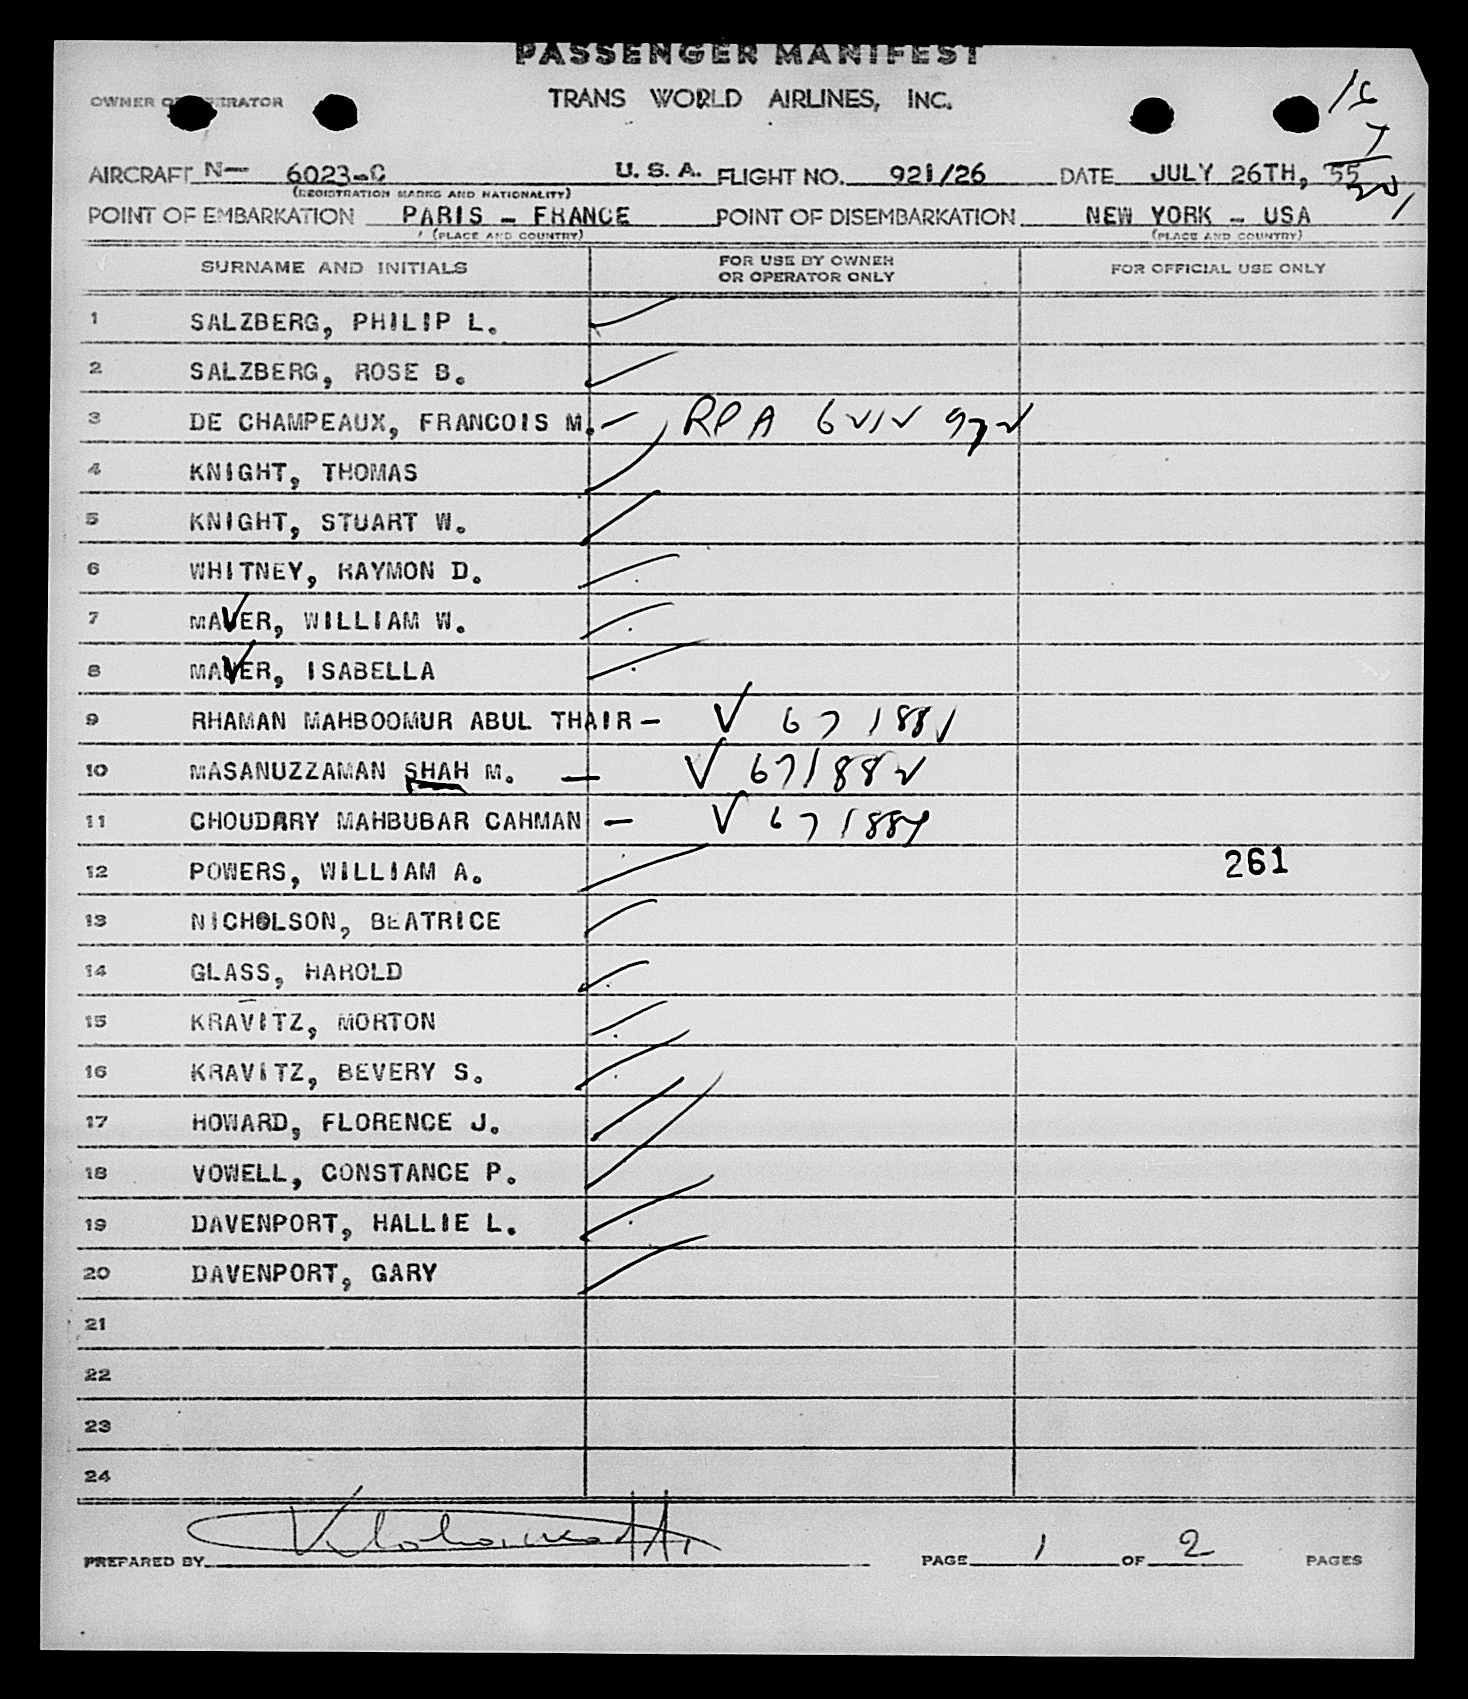 PASSENGER MANIFEST
OWNER OR OPERATOR TRANS WORLD AIRLINES, INC.
16
7
AIRCRAFT N— 6023-C U. S. A. FLIGHT NO. 921/26 DATE JULY 26TH, 55
(REGISTRATION MARKS AND NATIONALITY)
POINT OF EMBARKATION PARIS - FRANCE POINT OF DISEMBARKATION NEW YORK - USA
(PLACE AND COUNTRY) (PLACE AND COUNTRY)
SURNAME AND INITIALS FOR USE BY OWNER OR OPERATOR ONLY FOR OFFICIAL USE ONLY
1 SALZBERG, PHILIP L.
2 SALZBERG, ROSE B.
3 DE CHAMPEAUX, FRANCOIS M. — RPA 6212 972
4 KNIGHT, THOMAS
5 KNIGHT, STUART W.
6 WHITNEY, RAYMON D.
7 MAVER, WILLIAM W.
8 MAVER, ISABELLA
9 RHAMAN MAHBOOMUR ABUL THAIR — V 671881
10 MASANUZZAMAN SHAH M. — V 671882
11 CHOUDRRY MAHBUBAR CAHMAN — V 671884
12 POWERS, WILLIAM A. 261
13 NICHOLSON, BEATRICE
14 GLASS, HAROLD
15 KRAVITZ, MORTON
16 KRAVITZ, BEVERY S.
17 HOWARD, FLORENCE J.
18 VOWELL, CONSTANCE P.
19 DAVENPORT, HALLIE L.
20 DAVENPORT, GARY
21
22
23
24
PREPARED BY PAGE 1 OF 2 PAGES